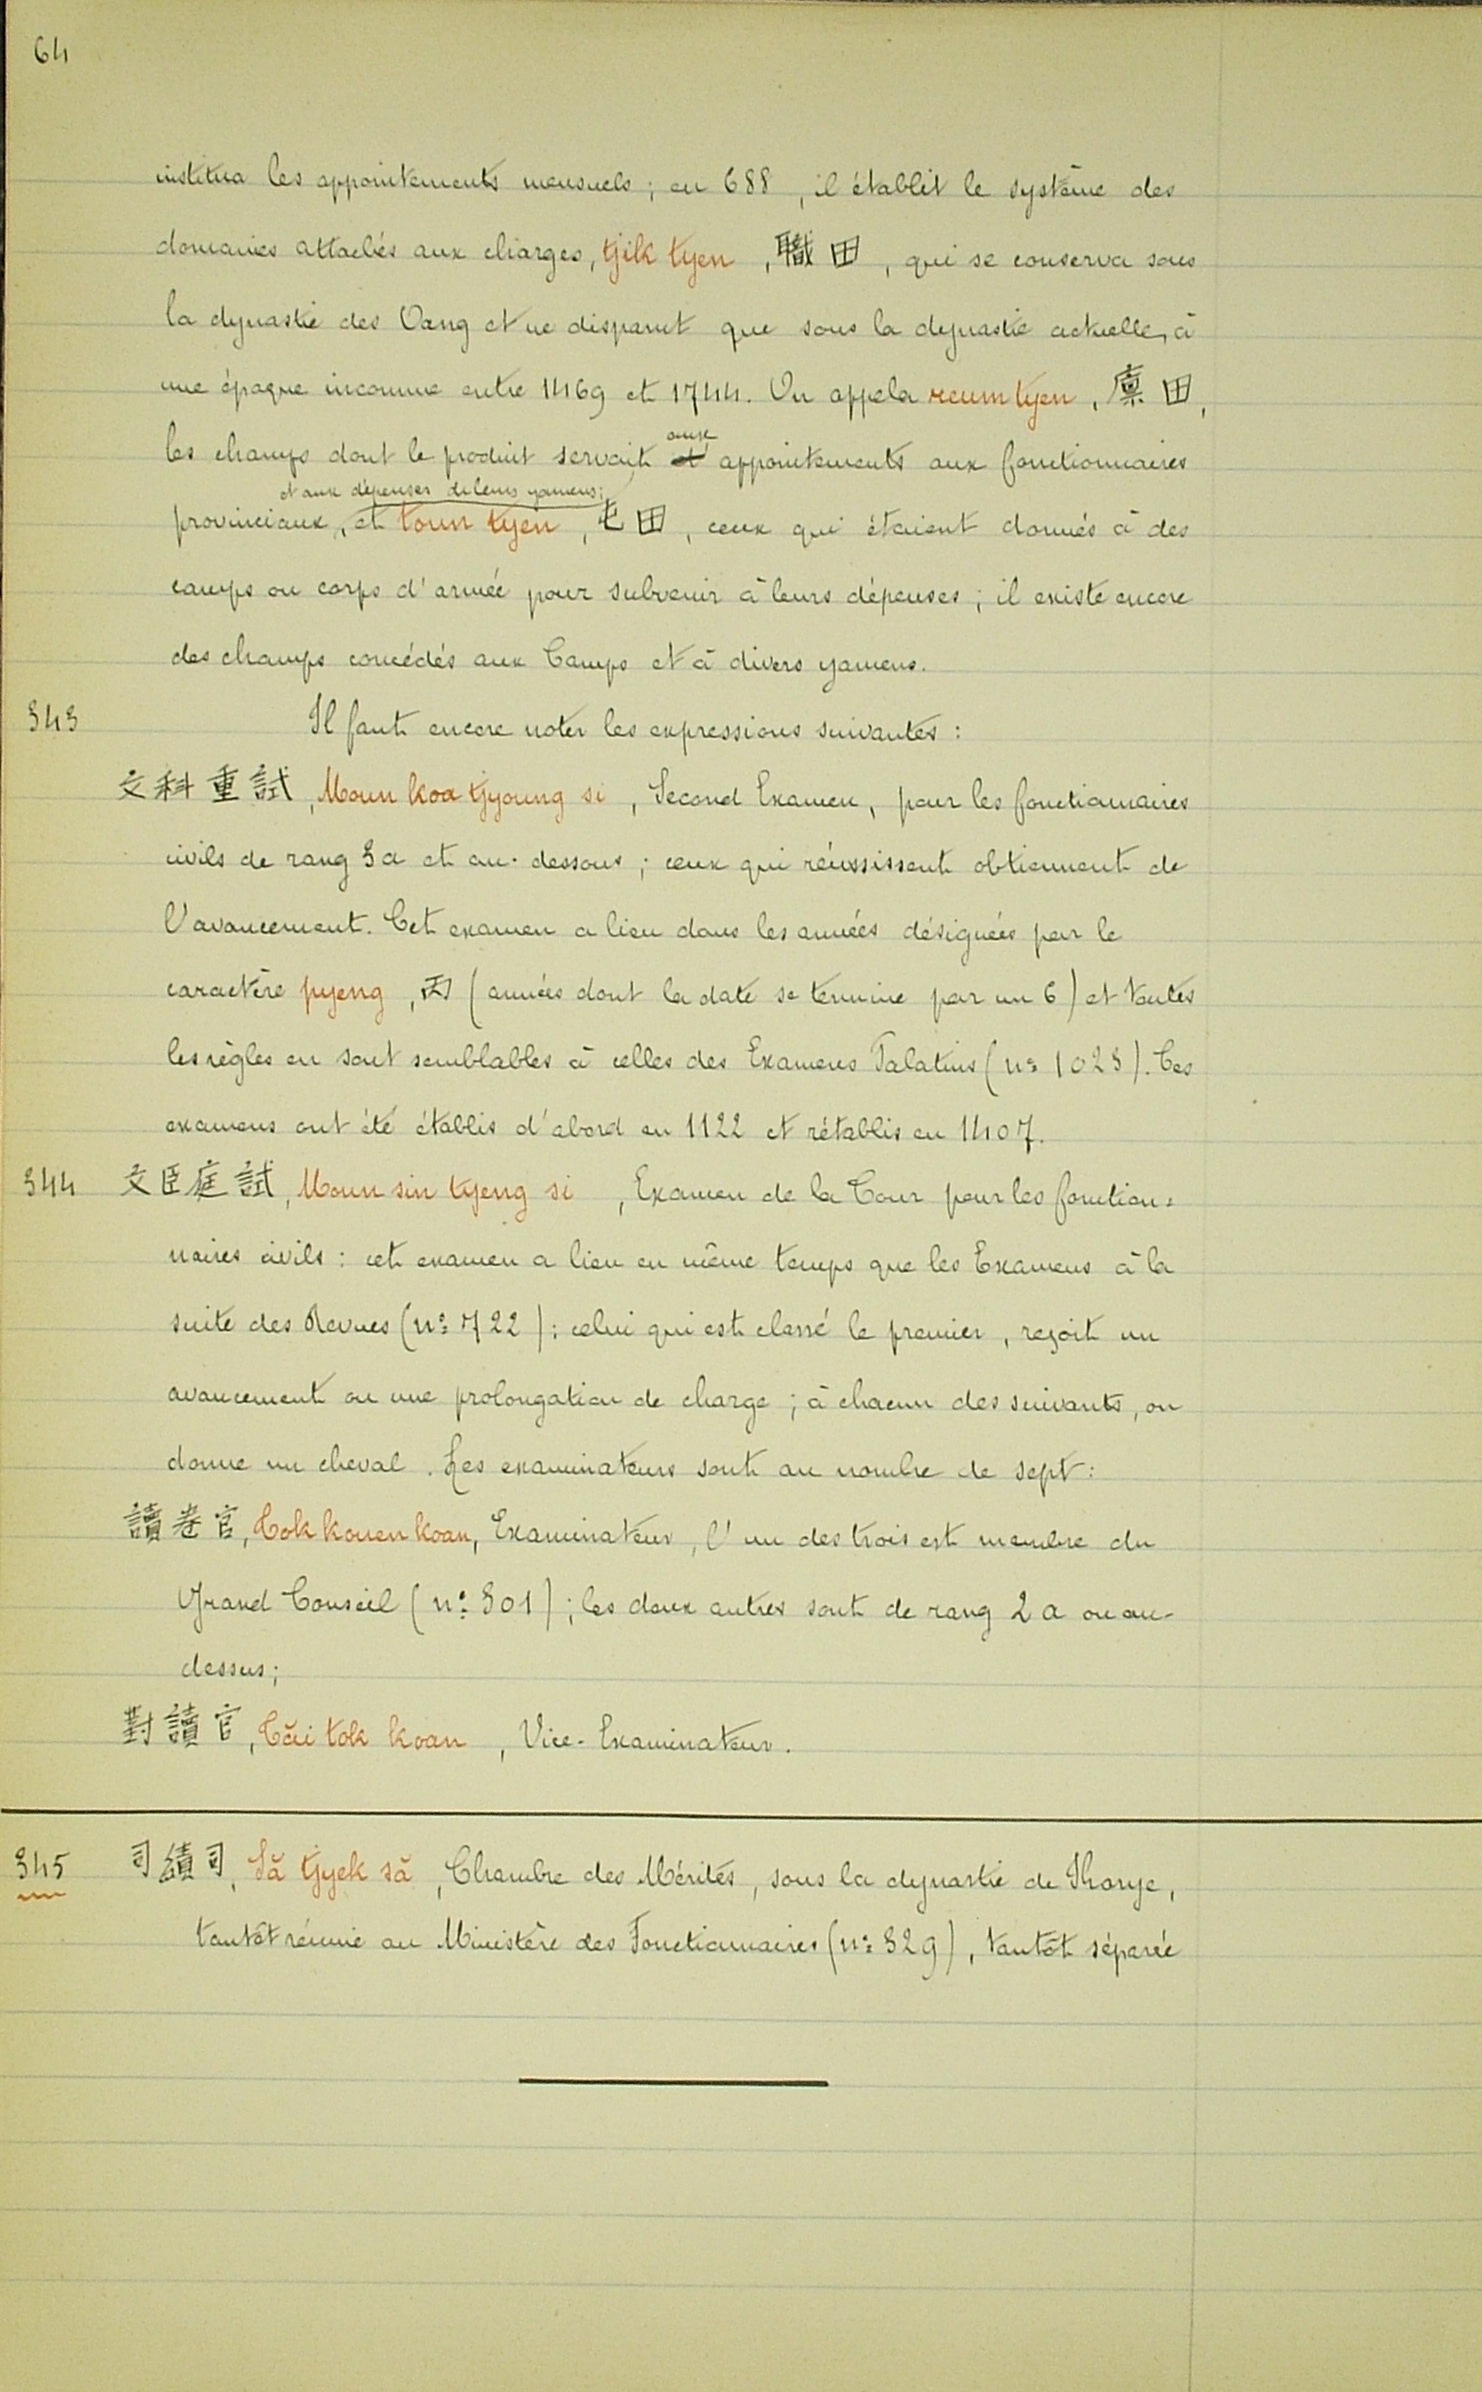 64
institua les appointements mensuels ; en 688, il établit le système des
domaines attachés aux charges, tjik tyen, 職田, qui se conserva sous
la dynastie des Oang et ne disparut que sous la dynastie actuelle, à
une époque inconnue entre 1469 et 1744. On appela reum tyen, 廩田,
les champs dont le produit servait aux appointements aux fonctionnaires
et aux dépenses de leurs yamens;
provinciaux, et toun tyen, 屯田, ceux qui étaient donnés à des
camps ou corps d'armée pour subvenir à leurs dépenses ; il existe encore
des champs concédés aux Camps et à divers yamens.
343 Il faut encore noter les expressions suivantes :
文科重試, Moun koa tjyoung si, Second Examen, pour les fonctionnaires
civils de rang 3a et au-dessous ; ceux qui réussissent obtiennent de
l'avancement. Cet examen a lieu dans les années désignées par le
caractère pyeng, 丙 (années dont la date se termine par un 6) et toutes
les règles en sont semblables à celles des Examens Palatins (nº 1023). Ces
examens ont été établis d'abord en 1122 et rétablis en 1407.
344 文臣庭試, Moun sin tyeng si, Examen de la Cour pour les fonction=
naires civils : cet examen a lieu en même temps que les Examens à la
suite des Revues (nº 722) ; celui qui est classé le premier, reçoit un
avancement ou une prolongation de charge ; à chacun des suivants, on
donne un cheval. Les examinateurs sont au nombre de sept :
讀卷官, Tok kouen koan, Examinateur, l'un des trois est membre du
Grand Conseil (nº 301) ; les deux autres sont de rang 2a ou au-
dessus ;
對讀官, Tăi tok koan, Vice-Examinateur.
345 司績司, Să tjyek să, Chambre des Mérites, sous la dynastie de Korye,
tantôt réunie au Ministère des Fonctionnaires (nº 329), tantôt séparée